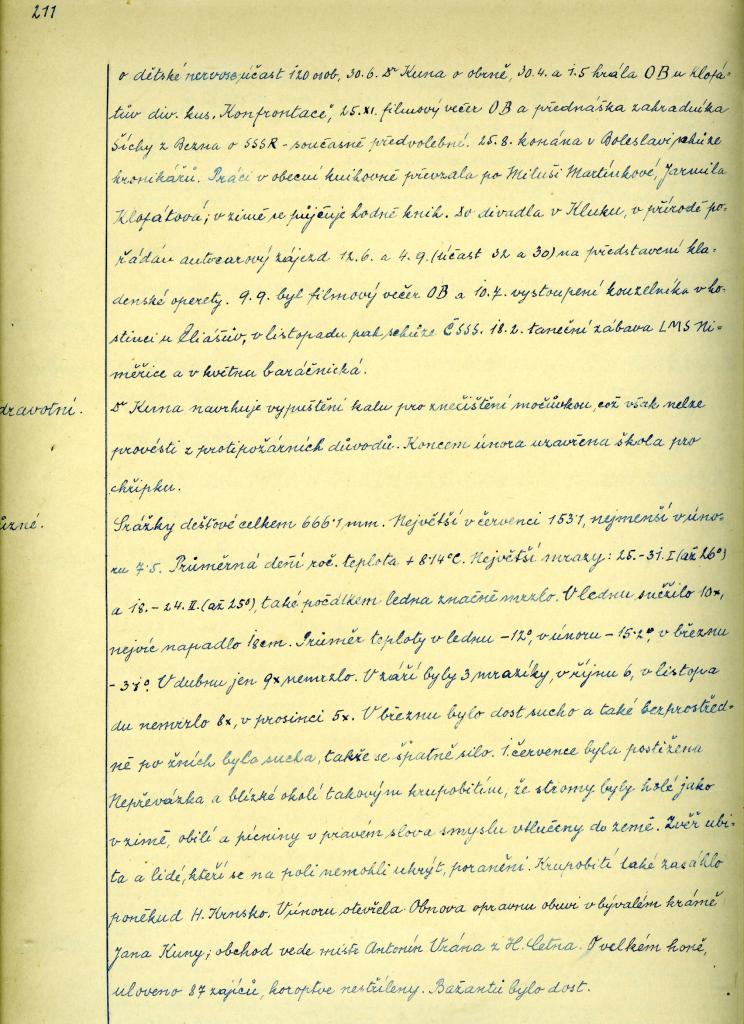 211
o dětské nervose, účast 120 osob, 30.6. Dr Kuna o obrně, 30.4. a 1.5 hrála OB u Klofá-
tův div. kus „Konfrontace", 25.XI. filmový večer OB a přednáška zahradníka
Šíchy z Bezna o SSSR - současně předvolební. 25.8. konána v Boleslavi schůze
kronikářů. Práci v obecní knihovně převzala po Miluši Martínkové, Jarmila
Klofátová; v zimě se půjčuje hodně knih. Do divadla v Kluku, v přírodě po-
řádán autocarový zájezd 12.6. a 4.9. (účast 32 a 30) na představení kla-
denské operety. 9.9. byl filmový večer OB a 10.7. vystoupení kouzelníka v ho-
stinci u Eliášův, v listopadu pak schůze ČSSS. 18.2. taneční zábava LMS Ni-
měřice a v květnu baráčnická.
dravotní. Dr Kuna navrhuje vypuštění kalu pro znečištění močůvkou, což však nelze
provésti z protipožárních důvodů. Koncem února uzavřena škola pro
chřipku.
ůzné. Srážky dešťové celkem 666·1 mm. Největší v červenci 153·1, nejmenší v úno-
ru 7·5. Průměrná denní roč. teplota + 8·14°C. Největší mrazy: 25.-31.I (až 26°)
a 18.-24.II. (až 25°), také počátkem ledna značně mrzlo. V lednu sněžilo 10x,
nejvíc napadlo 18cm. Průměr teploty v lednu -12°, v únoru -15·2°, v březnu
V dubnu jen 9x nemrzlo. V září byly 3 mrazíky, v říjnu 6, v listopa
du nemrzlo 8x, v prosinci 5x. V březnu bylo dost sucho a také bezprostřed-
ně po žních bylo sucha, takže se špatně silo. 1. července byla postižena
Nepřevázka a blízké okolí takovým krupobitím, že stromy byly holé jako
v zimě, obilí a pícniny v pravém slova smyslu vtlučeny do země. Zvěř ubi-
ta a lidé, kteří se na poli nemohli ukrýt, poraněni. Krupobití také zasáhlo
poněkud H. Krnsko. V únoru otevřela Obnova opravnu obuvi v bývalém krámě
Jana Kuny; obchod vede mistr Antonín Vrána z H. Cetna. O velkém honě,
uloveno 87 zajíců, koroptve nestříleny. Bažantů bylo dost.